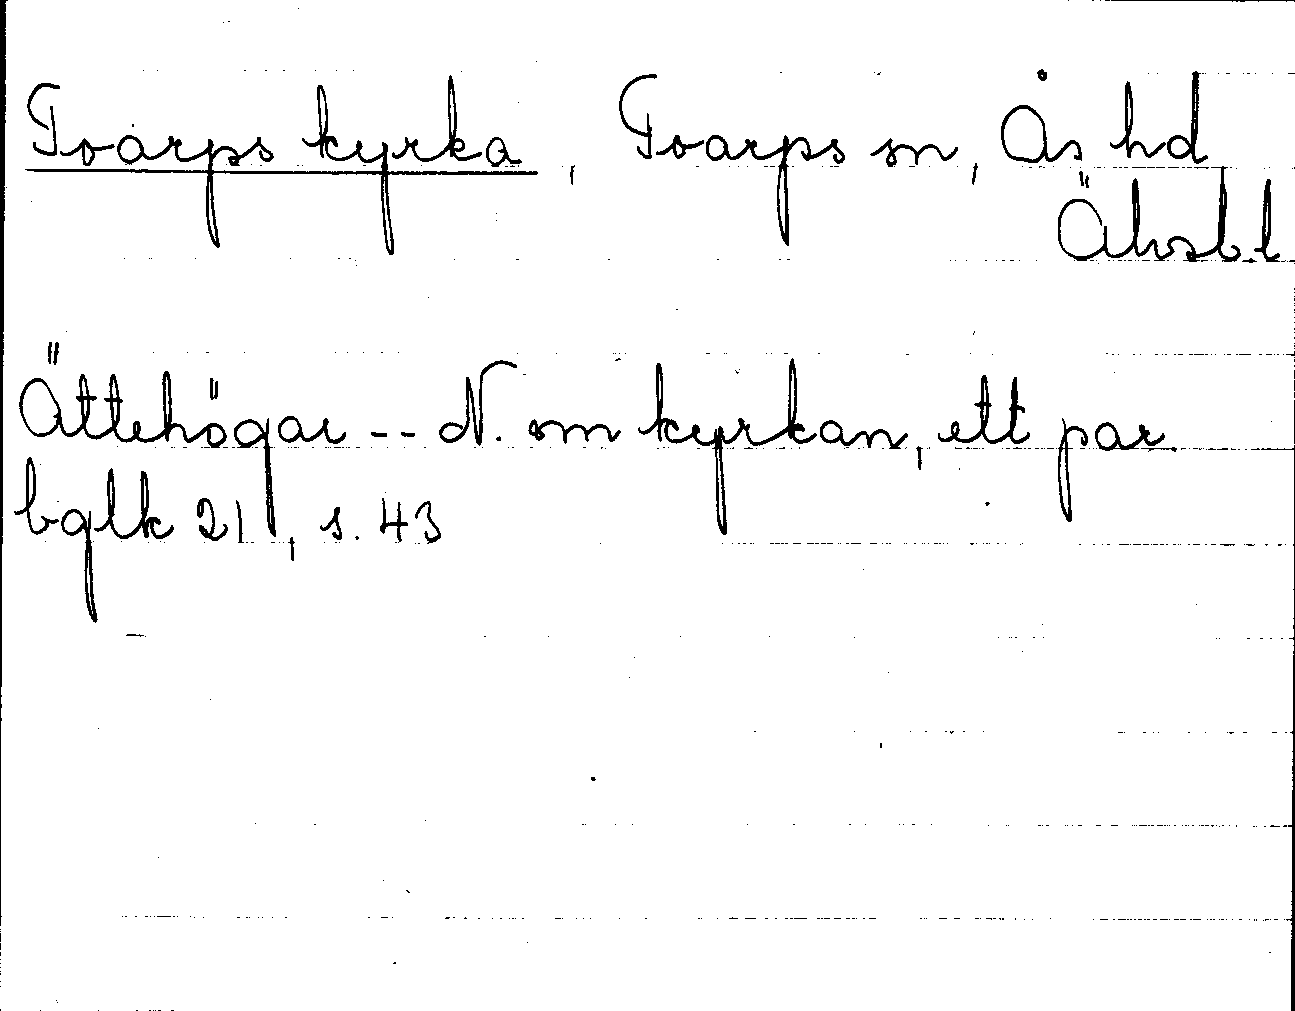 Toarps kyrka, Toarps sn, Ås hd
Älvsb.l
Ättehögar -- N. om kyrkan, ett par.
bglk 21, s. 43